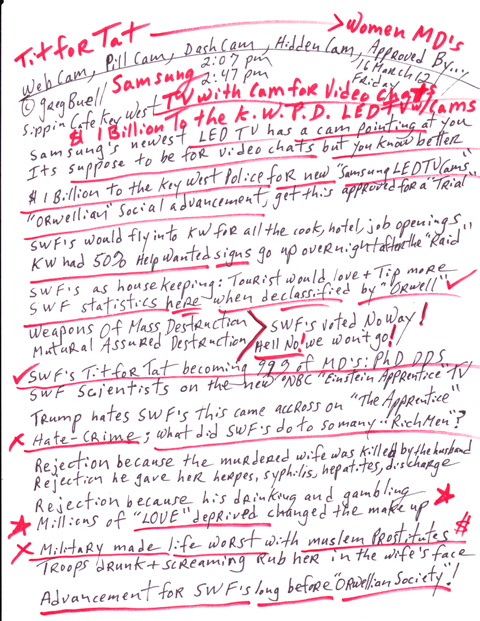 Tit for Tat > Women MD's
WebCam, PillCam, DashCam, HiddenCam, Approved By...
© greg Buell Samsung 2:07 pm 16 March 12
Sippin Cafe Key West 2:47 pm Friday
TV with Cam for Video Chats
$1 Billion To the K.W.P.D. LED TV w/Cams
Samsung's newest LED TV has a cam pointing at you
Its suppose to be for video chats but you know better
$1 Billion to the Key West Police for new "Samsung LED TV Cams"
"Orwellian" Social advancement, get this approved for a "Trial"
SWF's would fly into KW for all the cook, hotel, job openings
KW had 50% Help wanted signs go up overnight after the "Raid"
SWF's as house keeping: Tourist would love + Tip more
SWF statistics here when declassified by "Orwell"
Weapons Of Mass Destruction > SWF's voted No Way!
Mutural Assured Destruction Hell No! we wont go!
SWF's Tit for Tat becoming 99% of MD's; PhD DDS
SWF Scientists on the new "NBC "Einstein Apprentice" TV
Trump hates SWF's this came accross on "The Apprentice"
Hate-Crime; what did SWF's do to so many "Rich Men"?
Rejection because the murdered wife was killed by the husband
Rejection he gave her herpes, syphilis, hepatites, discharge
Rejection because his drinking and gambling
Millions of "LOVE" deprived changed the make up
Military made life worst with muslem Prostitutes $
Troops drunk + screaming Rub her in the wife's face
Advancement for SWF's long before "Orwellian Society"!